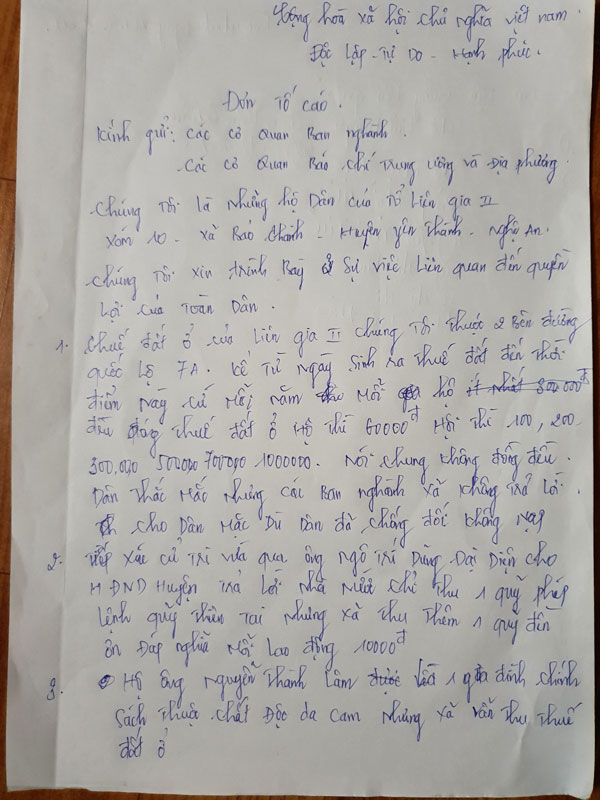 Cộng hòa xã hội chủ nghĩa việt nam.
Độc Lập - Tự Do - Hạnh phúc.
Đơn Tố cáo.
Kính gửi: các cơ quan Ban nghành.
Các cơ quan Báo chí Trung ương và Địa phương.
Chúng Tôi là những hộ Dân của Tổ Liên gia II
xóm 10 - xã Bảo Thành - Huyện yên Thành - Nghệ An.
chúng Tôi xin trình Bày Sự việc Liên quan đến quyền
Lợi của Toàn Dân.
1. thuế đất ở của Liên gia II chúng Tôi thuộc 2 Bên đường
quốc Lộ 7A. kể Từ ngày Sinh ra thuế đất đến thời
điểm này cứ mỗi năm mỗi hộ 300.000đ
đều đóng thuế đất ở Hộ thì 60000đ Hội thì 100, 200.
300,000 500000 700000 1000000. Nói chung không đồng đều.
Dân thắc mắc nhưng các Ban nghành xã không trả Lời
cho Dân mặc Dù Dân đã chống đối không nạp
2. tiếp xúc cử tri vừa qua. ông ngô Trí Dũng Đại Diện cho
HĐND Huyện Trả Lời Nhà Nước chỉ thu 1 quỹ pháp
Lệnh quỹ thiên Tai nhưng xã thu thêm 1 quỹ đền
ơn Đáp nghĩa mỗi Lao động 10000đ
3. Hộ ông Nguyễn Thành Lâm được 1 gia đình chính
sách thuộc chất Độc da cam nhưng xã vẫn thu thuế
đất ở